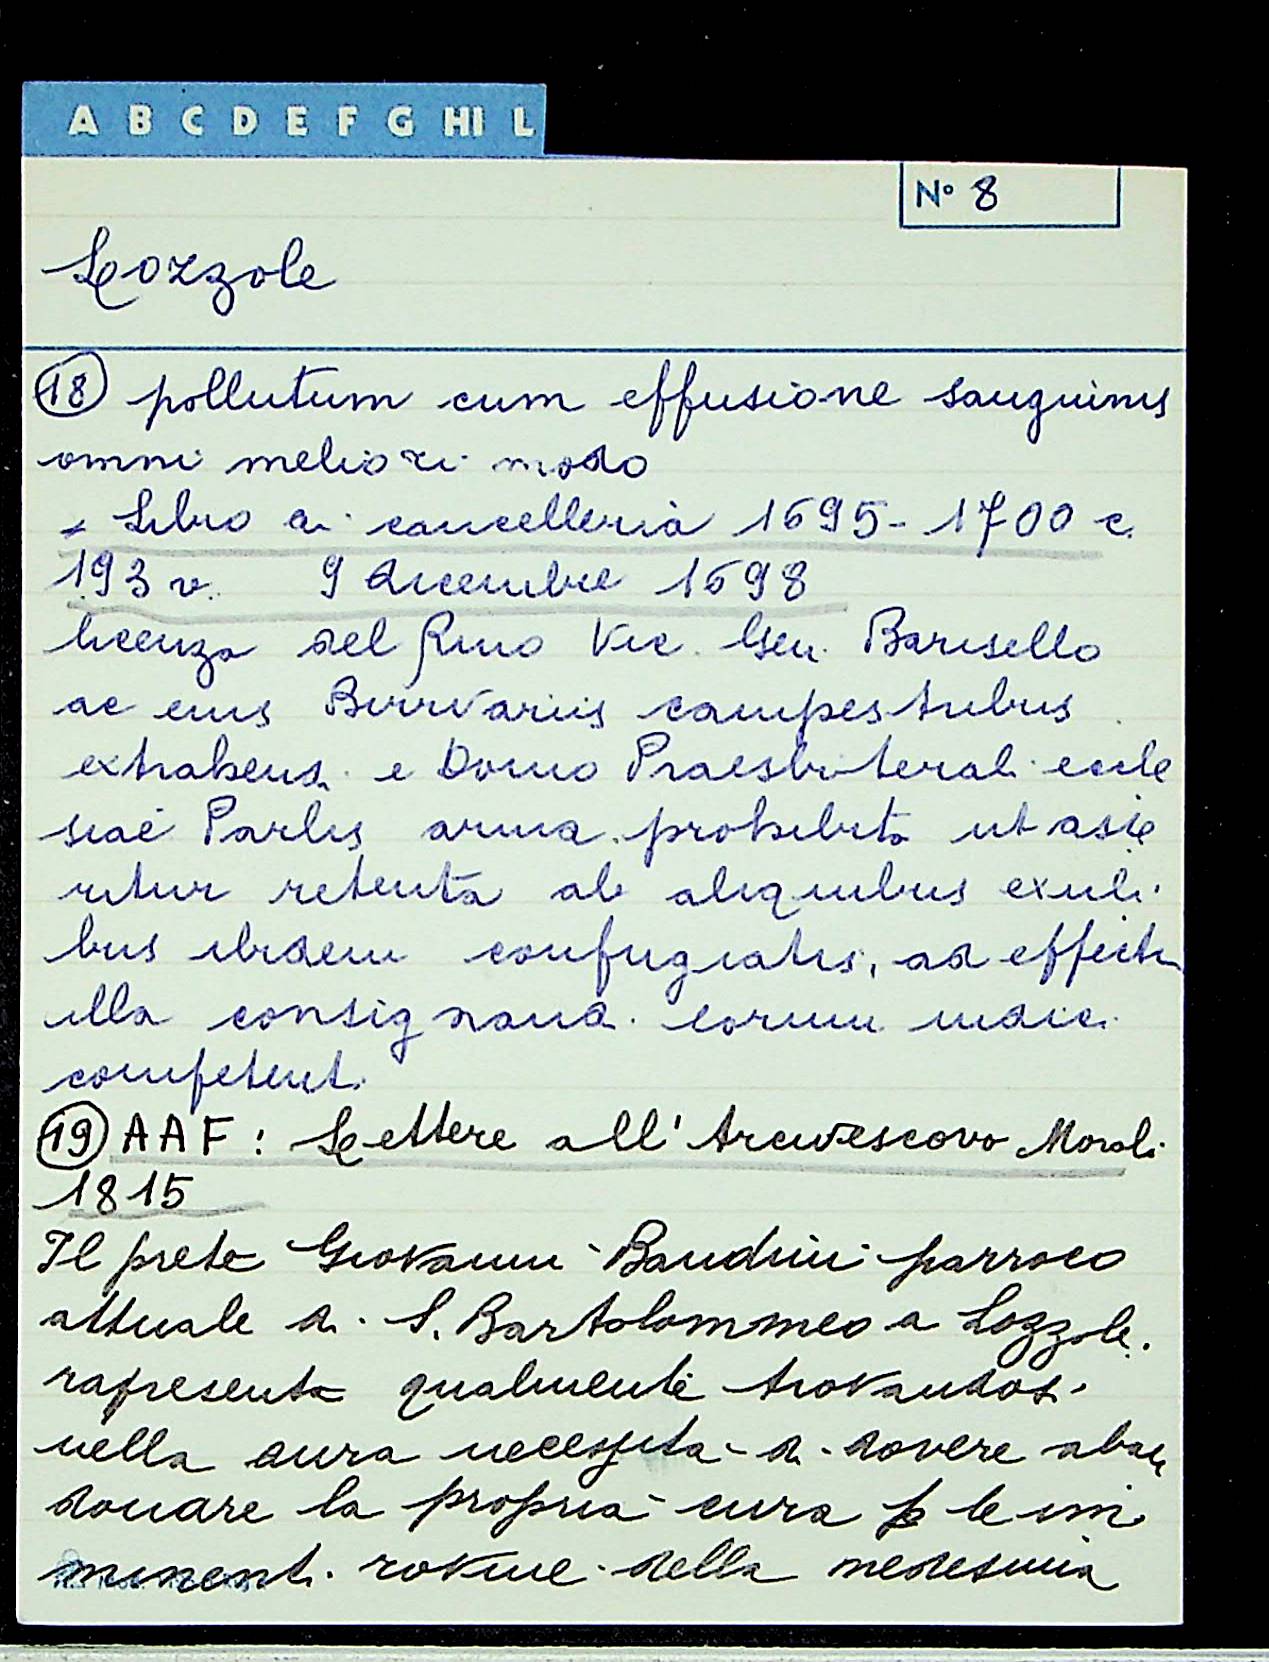 A B C D E F G HI L
N° 8
Lozzole
18 pollutum cum effusione sanguinis
omni meliori modo
- Libro di cancelleria 1695-1700 c.
193 v. 9 dicembre 1698
licenza del Rmo Vic. Gen. Barisello
ac eius Birrvariis campestribus
extrahend. e Domo Praesbiterali eccle
siae Parlis arma prohibita ut asse
ritur retenta ab aliquibus exuli
bus ibidem confugiatis, ad effectu
illa consignand. eorum iudici
competent.
19 AAF: Lettere all'Arcivescovo Morali
1815
Il prete Giovanni Bandini parroco
attuale di S. Bartolommeo a Lozzole.
rapresenta qualmente trovandosi
nella dura necessita di dovere aban
donare la propria cura p le im
minenti rovine della medesima